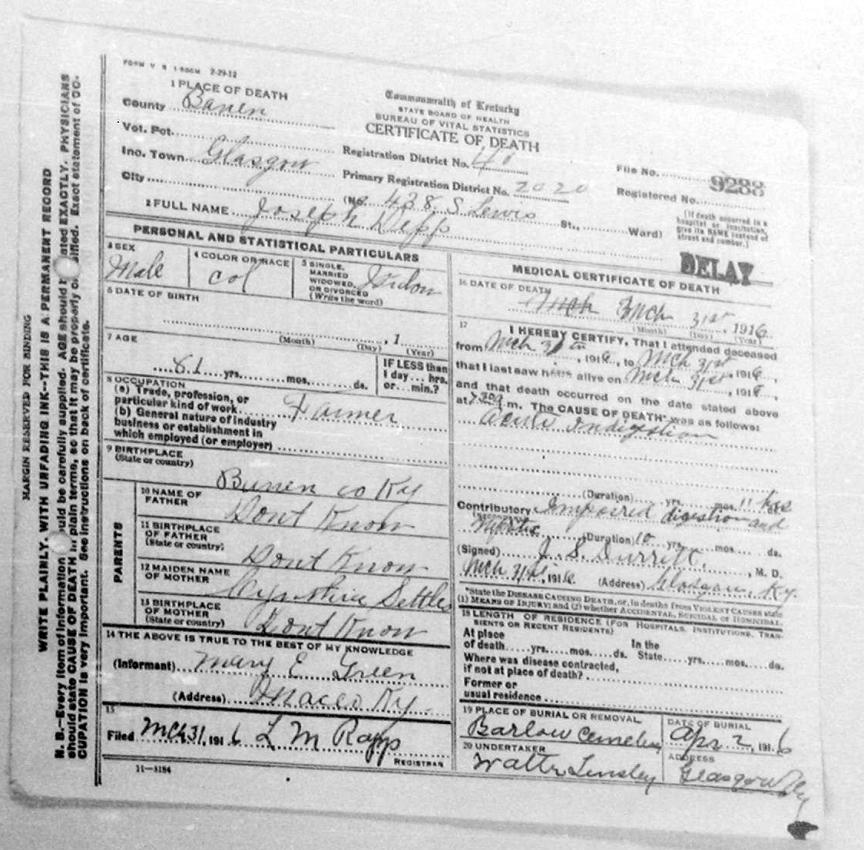 FORM V. S. 2-29-12
1 PLACE OF DEATH
County Barren
Vot. Pct.
Inc. Town Glasgow
City
Commonwealth of Kentucky
STATE BOARD OF HEALTH
BUREAU OF VITAL STATISTICS
CERTIFICATE OF DEATH
Registration District No. 40
Primary Registration District No. 2020
(No. 438. S Lewis St., Ward)
File No. 9288
Registered No.
(If death occurred in a
hospital or institution,
give its NAME instead of
street and number.)
2 FULL NAME Joseph Depp
DELAY
PERSONAL AND STATISTICAL PARTICULARS
3 SEX
Male
4 COLOR OR RACE
Col
5 SINGLE,
MARRIED
WIDOWED,
OR DIVORCED
(Write the word)
6 DATE OF BIRTH
, 1
(Month) (Day) (Year)
7 AGE
81 yrs. mos. ds.
IF LESS than
1 day... hrs.
or... min.?
8 OCCUPATION
(a) Trade, profession, or
particular kind of work Farmer
(b) General nature of industry
business or establishment in
which employed (or employer)
9 BIRTHPLACE
(State or country)
Barren co Ky
PARENTS
10 NAME OF
FATHER Dont Know
11 BIRTHPLACE
OF FATHER
(State or country) Dont Know
12 MAIDEN NAME
OF MOTHER Cynthia Settles
13 BIRTHPLACE
OF MOTHER
(State or country) Dont Know
14 THE ABOVE IS TRUE TO THE BEST OF MY KNOWLEDGE
(Informant) Mary E Green
(Address) Maceo Ky.
15
Filed Mch 31, 1916 L M Rapp
REGISTRAR
11-3184
MEDICAL CERTIFICATE OF DEATH
16 DATE OF DEATH
Mch Mch 31st, 1916
(Month) (Day) (Year)
17 I HEREBY CERTIFY, That I attended deceased
from Mch 31, 1916, to Mch 31st, 1916,
that I last saw h alive on Mch 31st, 1916,
and that death occurred on the date stated above
at m. The CAUSE OF DEATH* was as follows:
Acute Indigestion
(Duration) yrs. mos. 11 hrs
Contributory Impaired digestion and
(SECONDARY)
(Duration) 10 yrs. mos. ds.
(Signed) J. S. Durrett, M. D.
Mch 31st, 1916 (Address) Glasgow, Ky.
*State the DISEASE CAUSING DEATH, or, in deaths from VIOLENT CAUSES state
(1) MEANS OF INJURY; and (2) whether ACCIDENTAL, SUICIDAL or HOMICIDAL.
18 LENGTH OF RESIDENCE (FOR HOSPITALS, INSTITUTIONS, TRAN-
SIENTS OR RECENT RESIDENTS)
At place In the
of death yrs. mos. ds. State yrs. mos. ds.
Where was disease contracted,
if not at place of death?
Former or
usual residence
19 PLACE OF BURIAL OR REMOVAL
Barlow Cemetery
DATE OF BURIAL
Apr 2, 1916
20 UNDERTAKER
Walter Linsley
ADDRESS
Glasgow Ky
MARGIN RESERVED FOR BINDING
WRITE PLAINLY, WITH UNFADING INK--THIS IS A PERMANENT RECORD
N. B.--Every item of information should be carefully supplied. AGE should be stated EXACTLY. PHYSICIANS
should state CAUSE OF DEATH in plain terms, so that it may be properly classified. Exact statement of OC-
CUPATION is very important. See instructions on back of certificate.